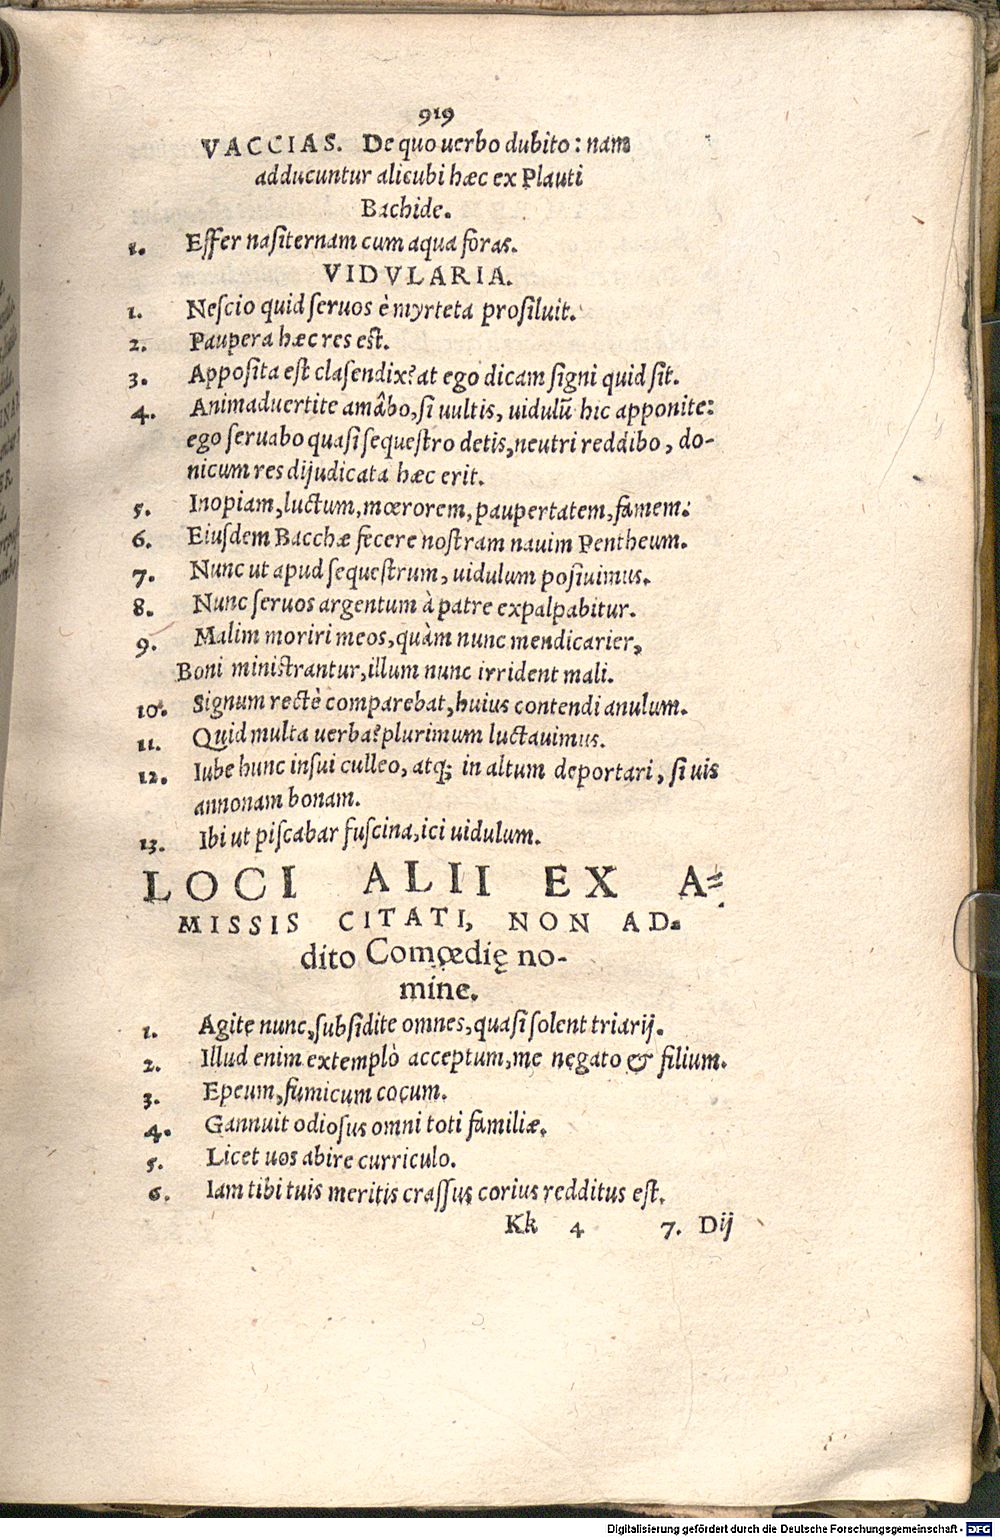 919
VACCIAS. De quo uerbo dubito: nam
adducuntur alicubi hæc ex Plauti
Bachide.
1. Effer nasiternam cum aqua foras.
VIDVLARIA.
1. Nescio quid seruos è myrteta prosiluit.
2. Paupera hæc res est.
3. Apposita est clasendix? at ego dicam signi quid sit.
4. Animaduertite amâbo, si uultis, uidulũ hic apponite:
ego seruabo quasi sequestro detis, neutri reddibo, do-
nicum res dijudicata hæc erit.
5. Inopiam, luctum, mœrorem, paupertatem, famem:
6. Eiusdem Bacchæ fecere nostram nauim Pentheum.
7. Nunc ut apud sequestrum, uidulum posiuimus.
8. Nunc seruos argentum à patre expalpabitur.
9. Malim moriri meos, quàm nunc mendicarier,
Boni ministrantur, illum nunc irrident mali.
10. Signum rectè comparebat, huius contendi anulum.
11. Quid multa uerba? plurimum luctauimus.
12. Iube hunc insui culleo, atq; in altum deportari, si uis
annonam bonam.
13. Ibi ut piscabar fuscina, ici uidulum.
LOCI ALII EX A-
MISSIS CITATI, NON AD-
dito Comœdię no-
mine.
1. Agite nunc, subsidite omnes, quasi solent triarij.
2. Illud enim extemplò acceptum, me negato & filium.
3. Epeum, fumicum cocum.
4. Gannuit odiosus omni toti familiæ.
5. Licet uos abire curriculo.
6. Iam tibi tuis meritis crassus corius redditus est.
Kk 4 7. Dij
Digitalisierung gefördert durch die Deutsche Forschungsgemeinschaft - DFG